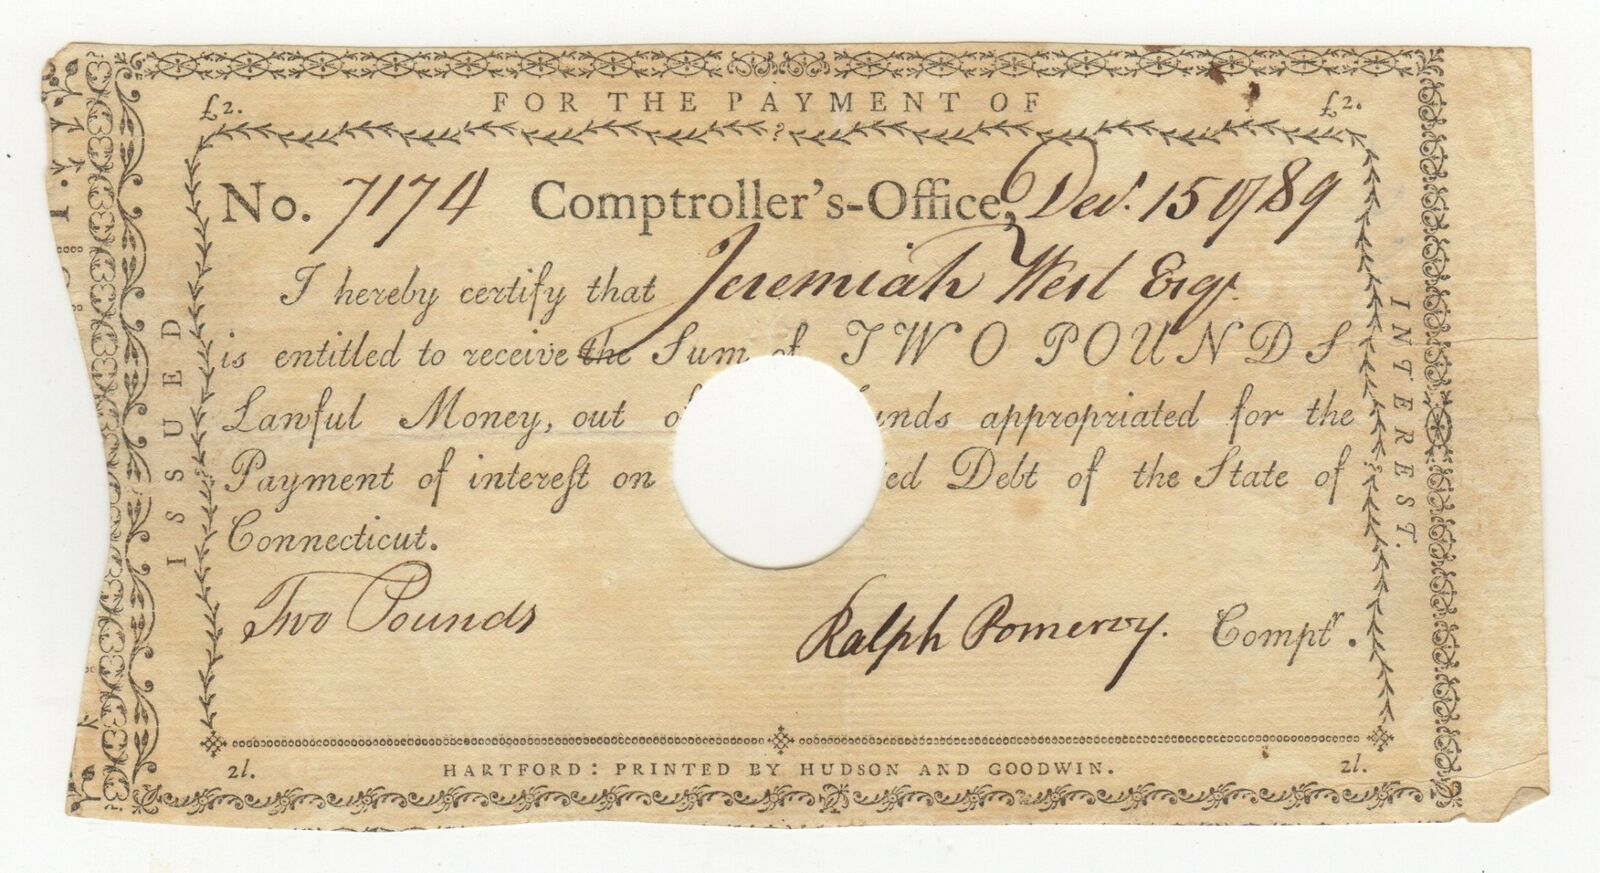 £2. FOR THE PAYMENT OF £2.
No. 7174 Comptroller's-Office, Dec.r 15 1789
I hereby certify that Jeremiah West Esqr.
is entitled to receive the Sum of TWO POUNDS
Lawful Money, out appropriated for the
Payment of interest on Debt of the State of
Connecticut.
Two Pounds
Ralph Pomeroy. Comptr.
2l. HARTFORD: PRINTED BY HUDSON AND GOODWIN. 2l.
ISSUED
INTEREST.